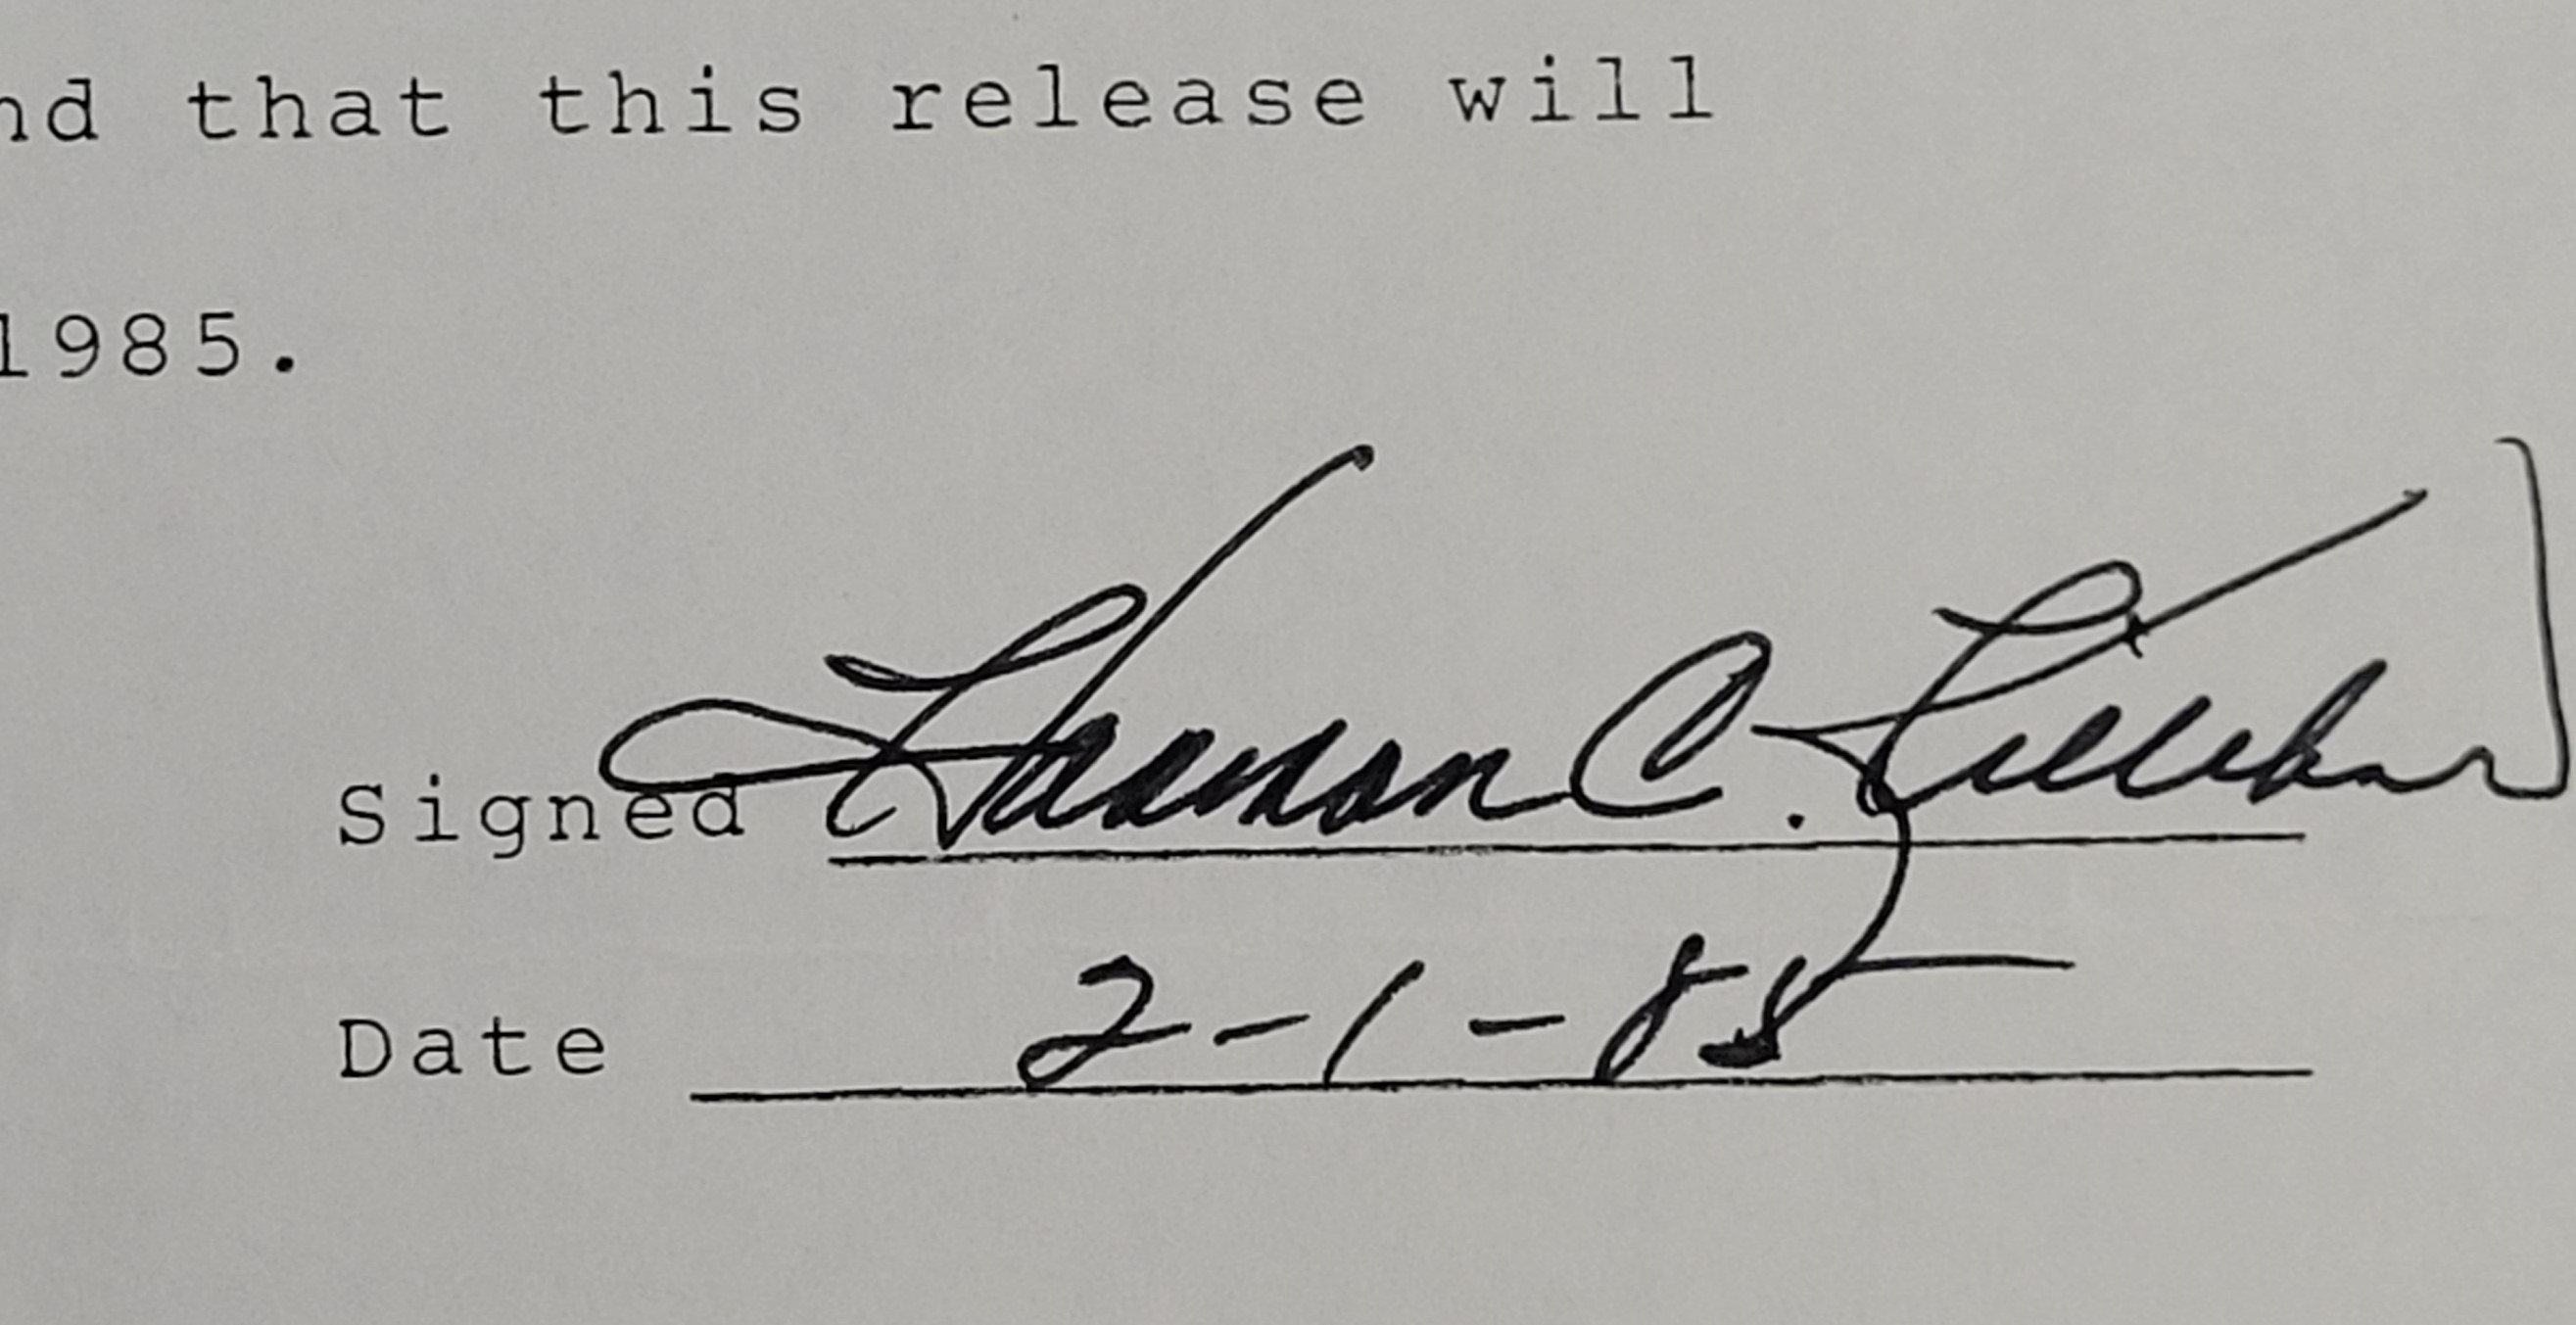 nd that this release will
1985.
Signed C.
Date 2-1-85